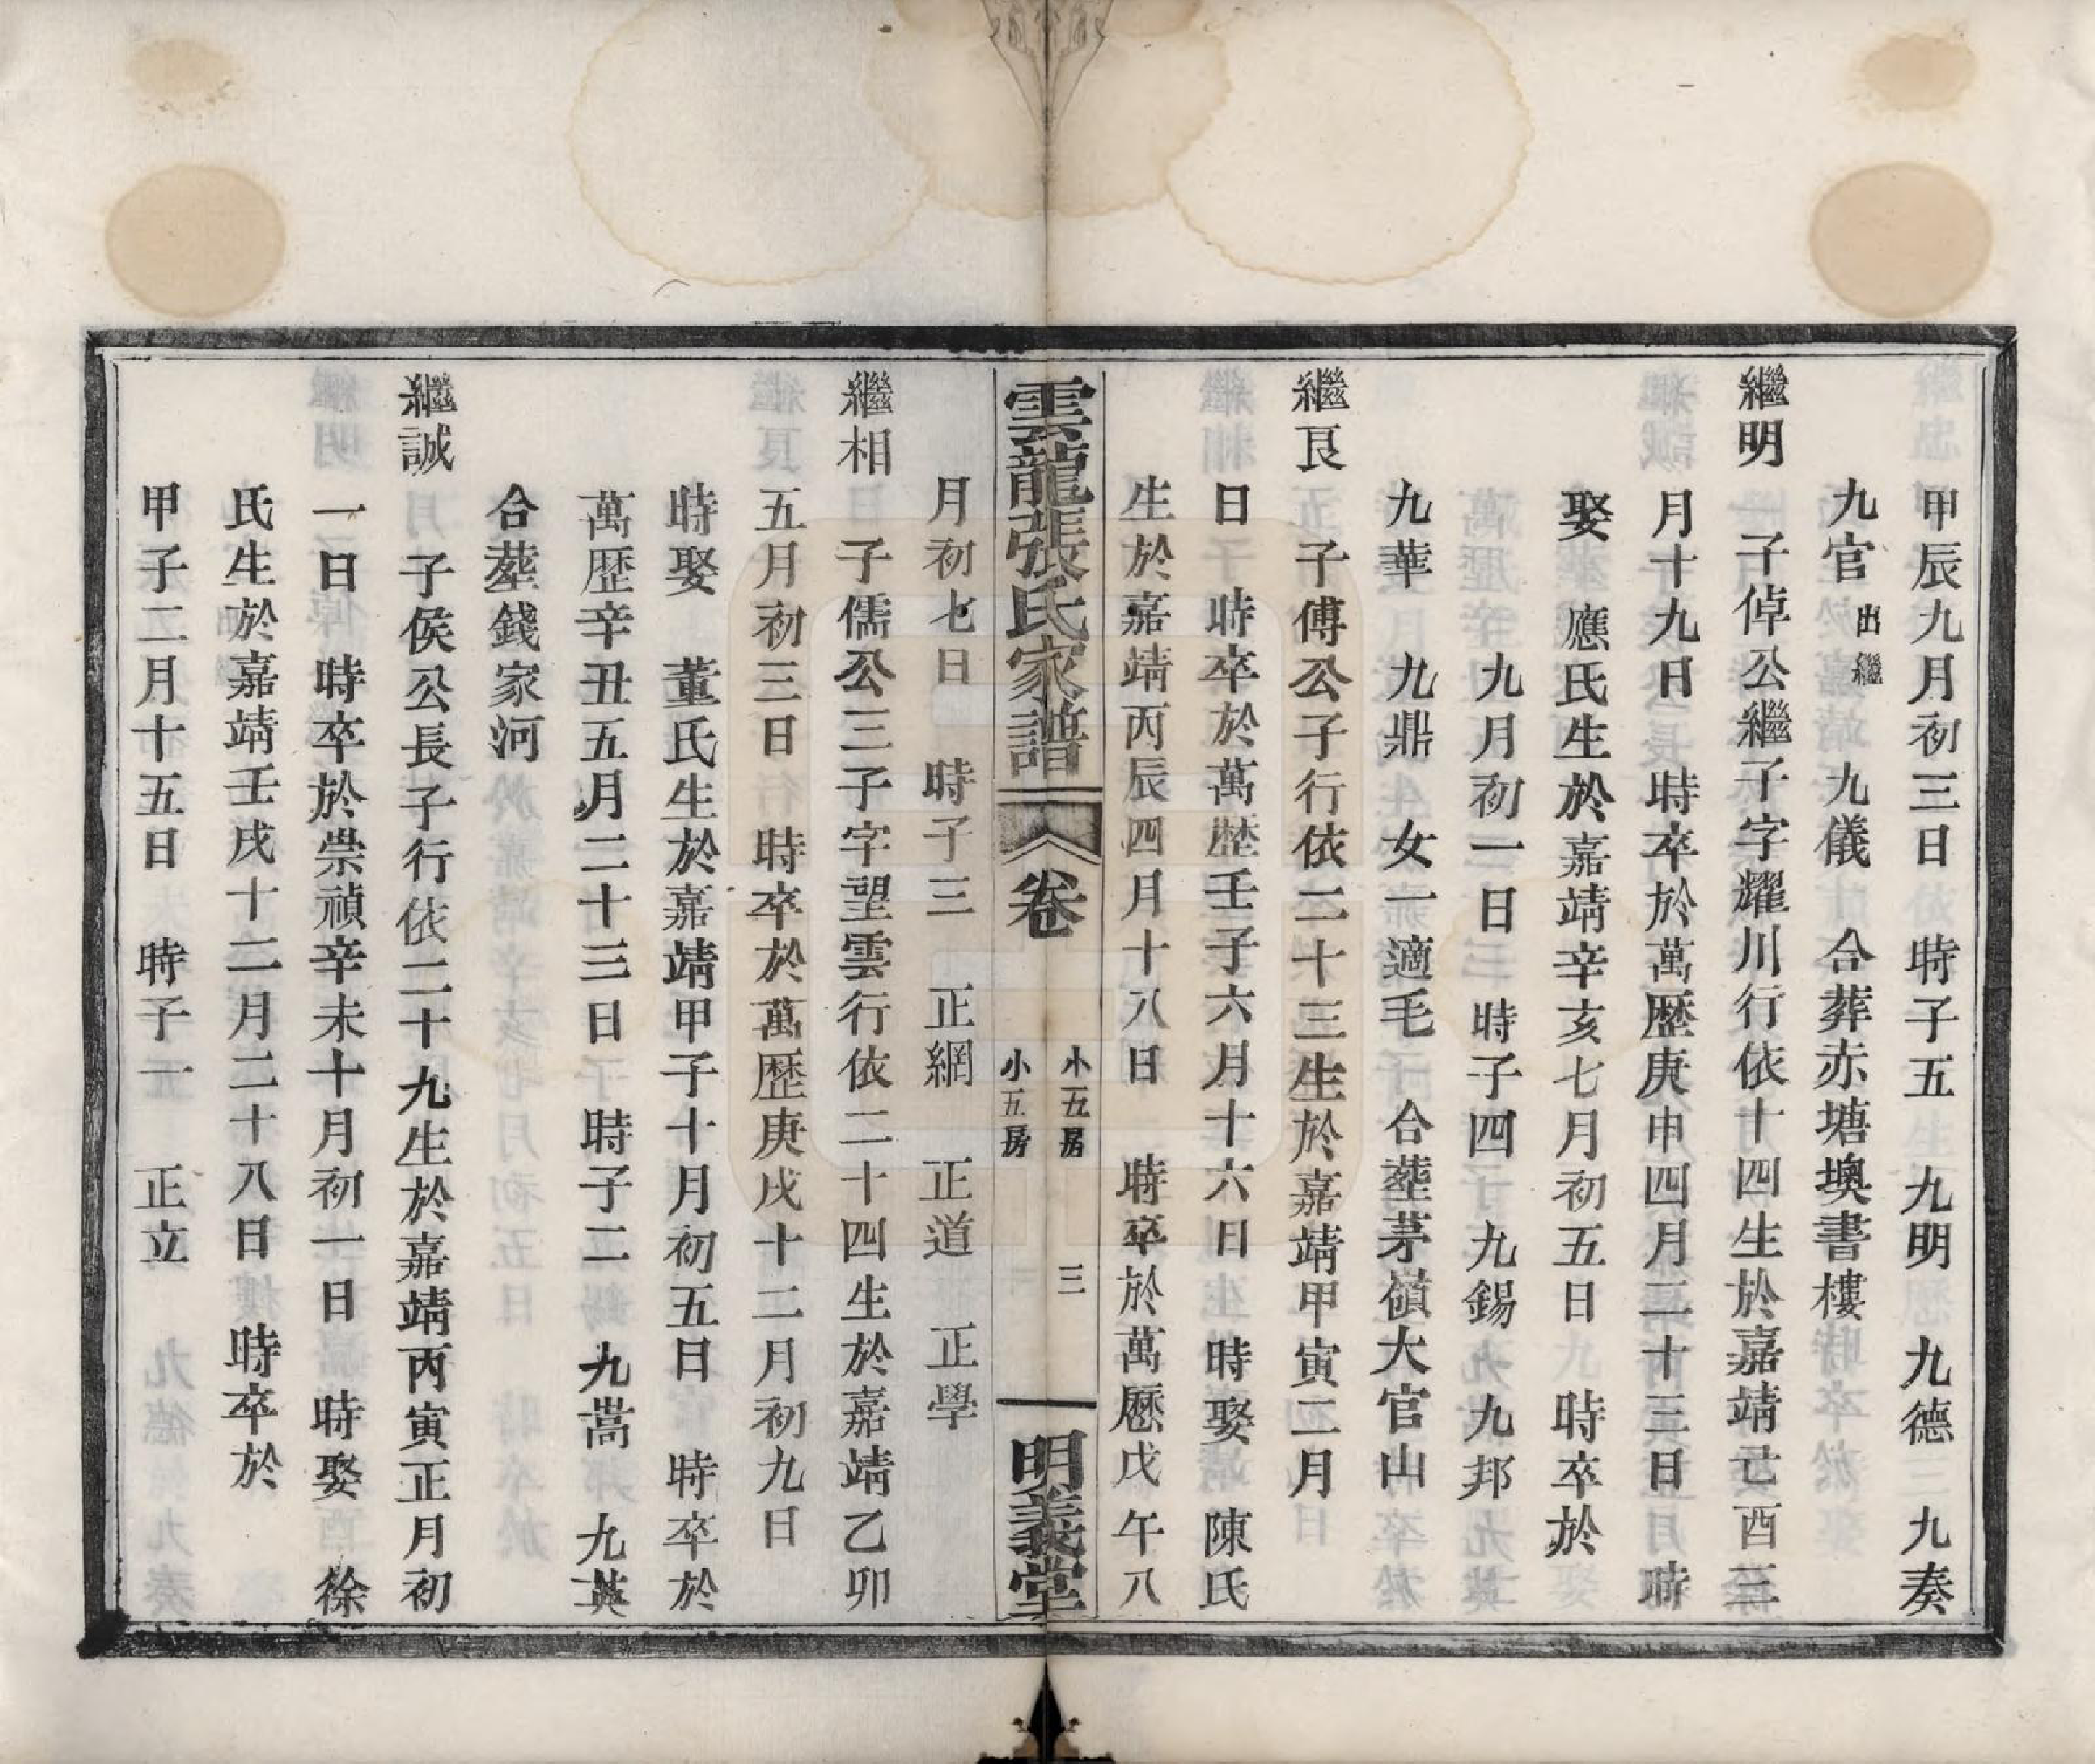 甲辰九月初三日　時子五　九明　九德　九奏
九官出繼　九儀　合葬赤塘墺書樓
繼明　子倬公繼子字耀川行依十四生於嘉靖己酉三
月十九日　時卒於萬歷庚申四月二十三日　時
娶　應氏生於嘉靖辛亥七月初五日　時卒於
九月初一日　時子四　九錫　九邦
九華　九鼎　女一適毛　合塟茅嶺大官山
繼良　子傅公子行依二十三生於嘉靖甲寅二月
日　時卒於萬歷壬子六月十六日　時娶　陳氏
生於嘉靖丙辰四月十八日　時卒於萬歷戊午八
雲龍張氏家譜　卷　小五房　小五房　三　明義堂
月初七日　時子三　正網　正道　正學
繼相　子儒公三子字望雲行依二十四生於嘉靖乙卯
五月初三日　時卒於萬歷庚戌十二月初九日
時娶　董氏生於嘉靖甲子十月初五日　時卒於
萬歷辛丑五月二十三日　時子二　九嵩　九英
合塟錢家河
繼誠　子侯公長子行依二十九生於嘉靖丙寅正月初
一日　時卒於崇禎辛未十月初一日　時娶　徐
氏生於嘉靖壬戌十二月二十八日　時卒於
甲子二月十五日　時子一　正立